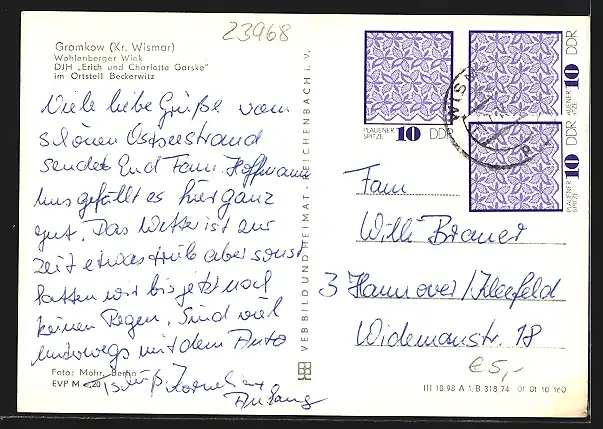 23968
Gramkow (Kr. Wismar)
Wohlenberger Wiek
DJH „Erich und Charlotte Garske"
im Ortsteil Beckerwitz
Viele liebe Grüße vom
schönen Ostseestrand
sendet Fam. Hoffmann
Uns gefällt es hier ganz
gut. Das Wetter ist zur
Zeit etwas trüb aber sonst
hatten wir bis jetzt noch
keinen Regen. Sind viel
unterwegs mit dem Auto
Foto: Mohr, Berlin
EVP M -,20
VEB BILD UND HEIMAT REICHENBACH i. V.
PLAUENER SPITZE 10 DDR
PLAUENER SPITZE 10 DDR
PLAUENER SPITZE 10 DDR
WISM
Fam
Willi Brauer
3 Hannover/Kleefeld
Widemanstr. 18
€ 5,-
III 18 98 A 1/B 318 74 01 01 10 160